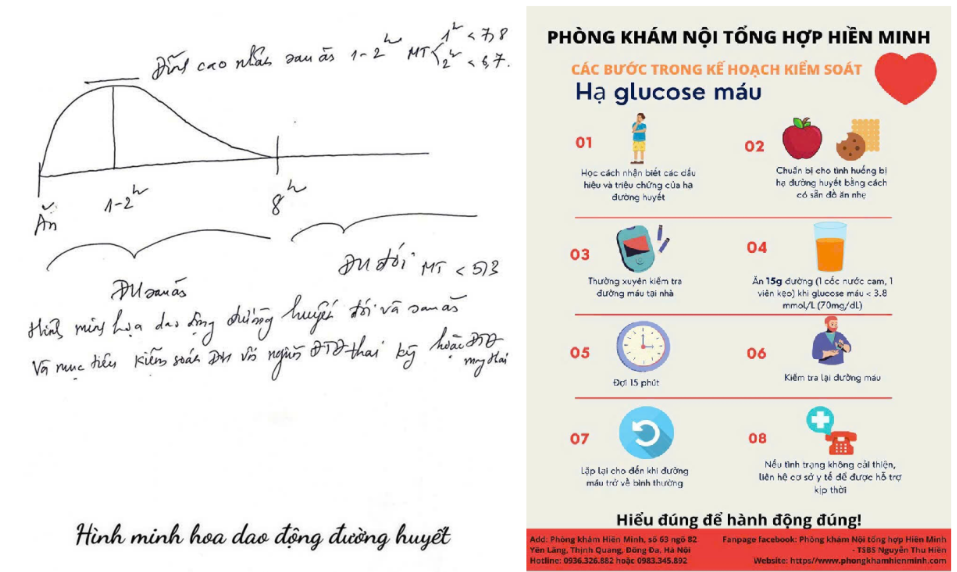 Đỉnh cao nhất sau ăn 1-2h MT 1h < 7,8
2h < 6,7.
Ăn
1-2h
8h
ĐH sau ăn
ĐH đói MT < 5,3
Hình minh họa dao động đường huyết đói và sau ăn
Và mục tiêu kiểm soát ĐH với người ĐTĐ thai kỳ hoặc ĐTĐ
mang thai
Hình minh hoa dao động đường huyết
PHÒNG KHÁM NỘI TỔNG HỢP HIỀN MINH
CÁC BƯỚC TRONG KẾ HOẠCH KIỂM SOÁT
Hạ glucose máu
01
Học cách nhận biết các dấu
hiệu và triệu chứng của hạ
đường huyết
02
Chuẩn bị cho tình huống bị
hạ đường huyết bằng cách
có sẵn đồ ăn nhẹ
03
Thường xuyên kiểm tra
đường máu tại nhà
04
Ăn 15g đường (1 cốc nước cam, 1
viên kẹo) khi glucose máu < 3.8
mmol/L (70mg/dL)
05
Đợi 15 phút
06
Kiểm tra lại đường máu
07
Lặp lại cho đến khi đường
máu trở về bình thường
08
Nếu tình trạng không cải thiện,
liên hệ cơ sở y tế để được hỗ trợ
kịp thời
Hiểu đúng để hành động đúng!
Add: Phòng khám Hiền Minh, số 63 ngõ 82
Yên Lãng, Thịnh Quang, Đống Đa, Hà Nội
Hotline: 0936.326.882 hoặc 0983.345.892
Fanpage facebook: Phòng khám Nội tổng hợp Hiền Minh
- TSBS Nguyễn Thu Hiền
Website: https//www.phongkhamhienminh.com